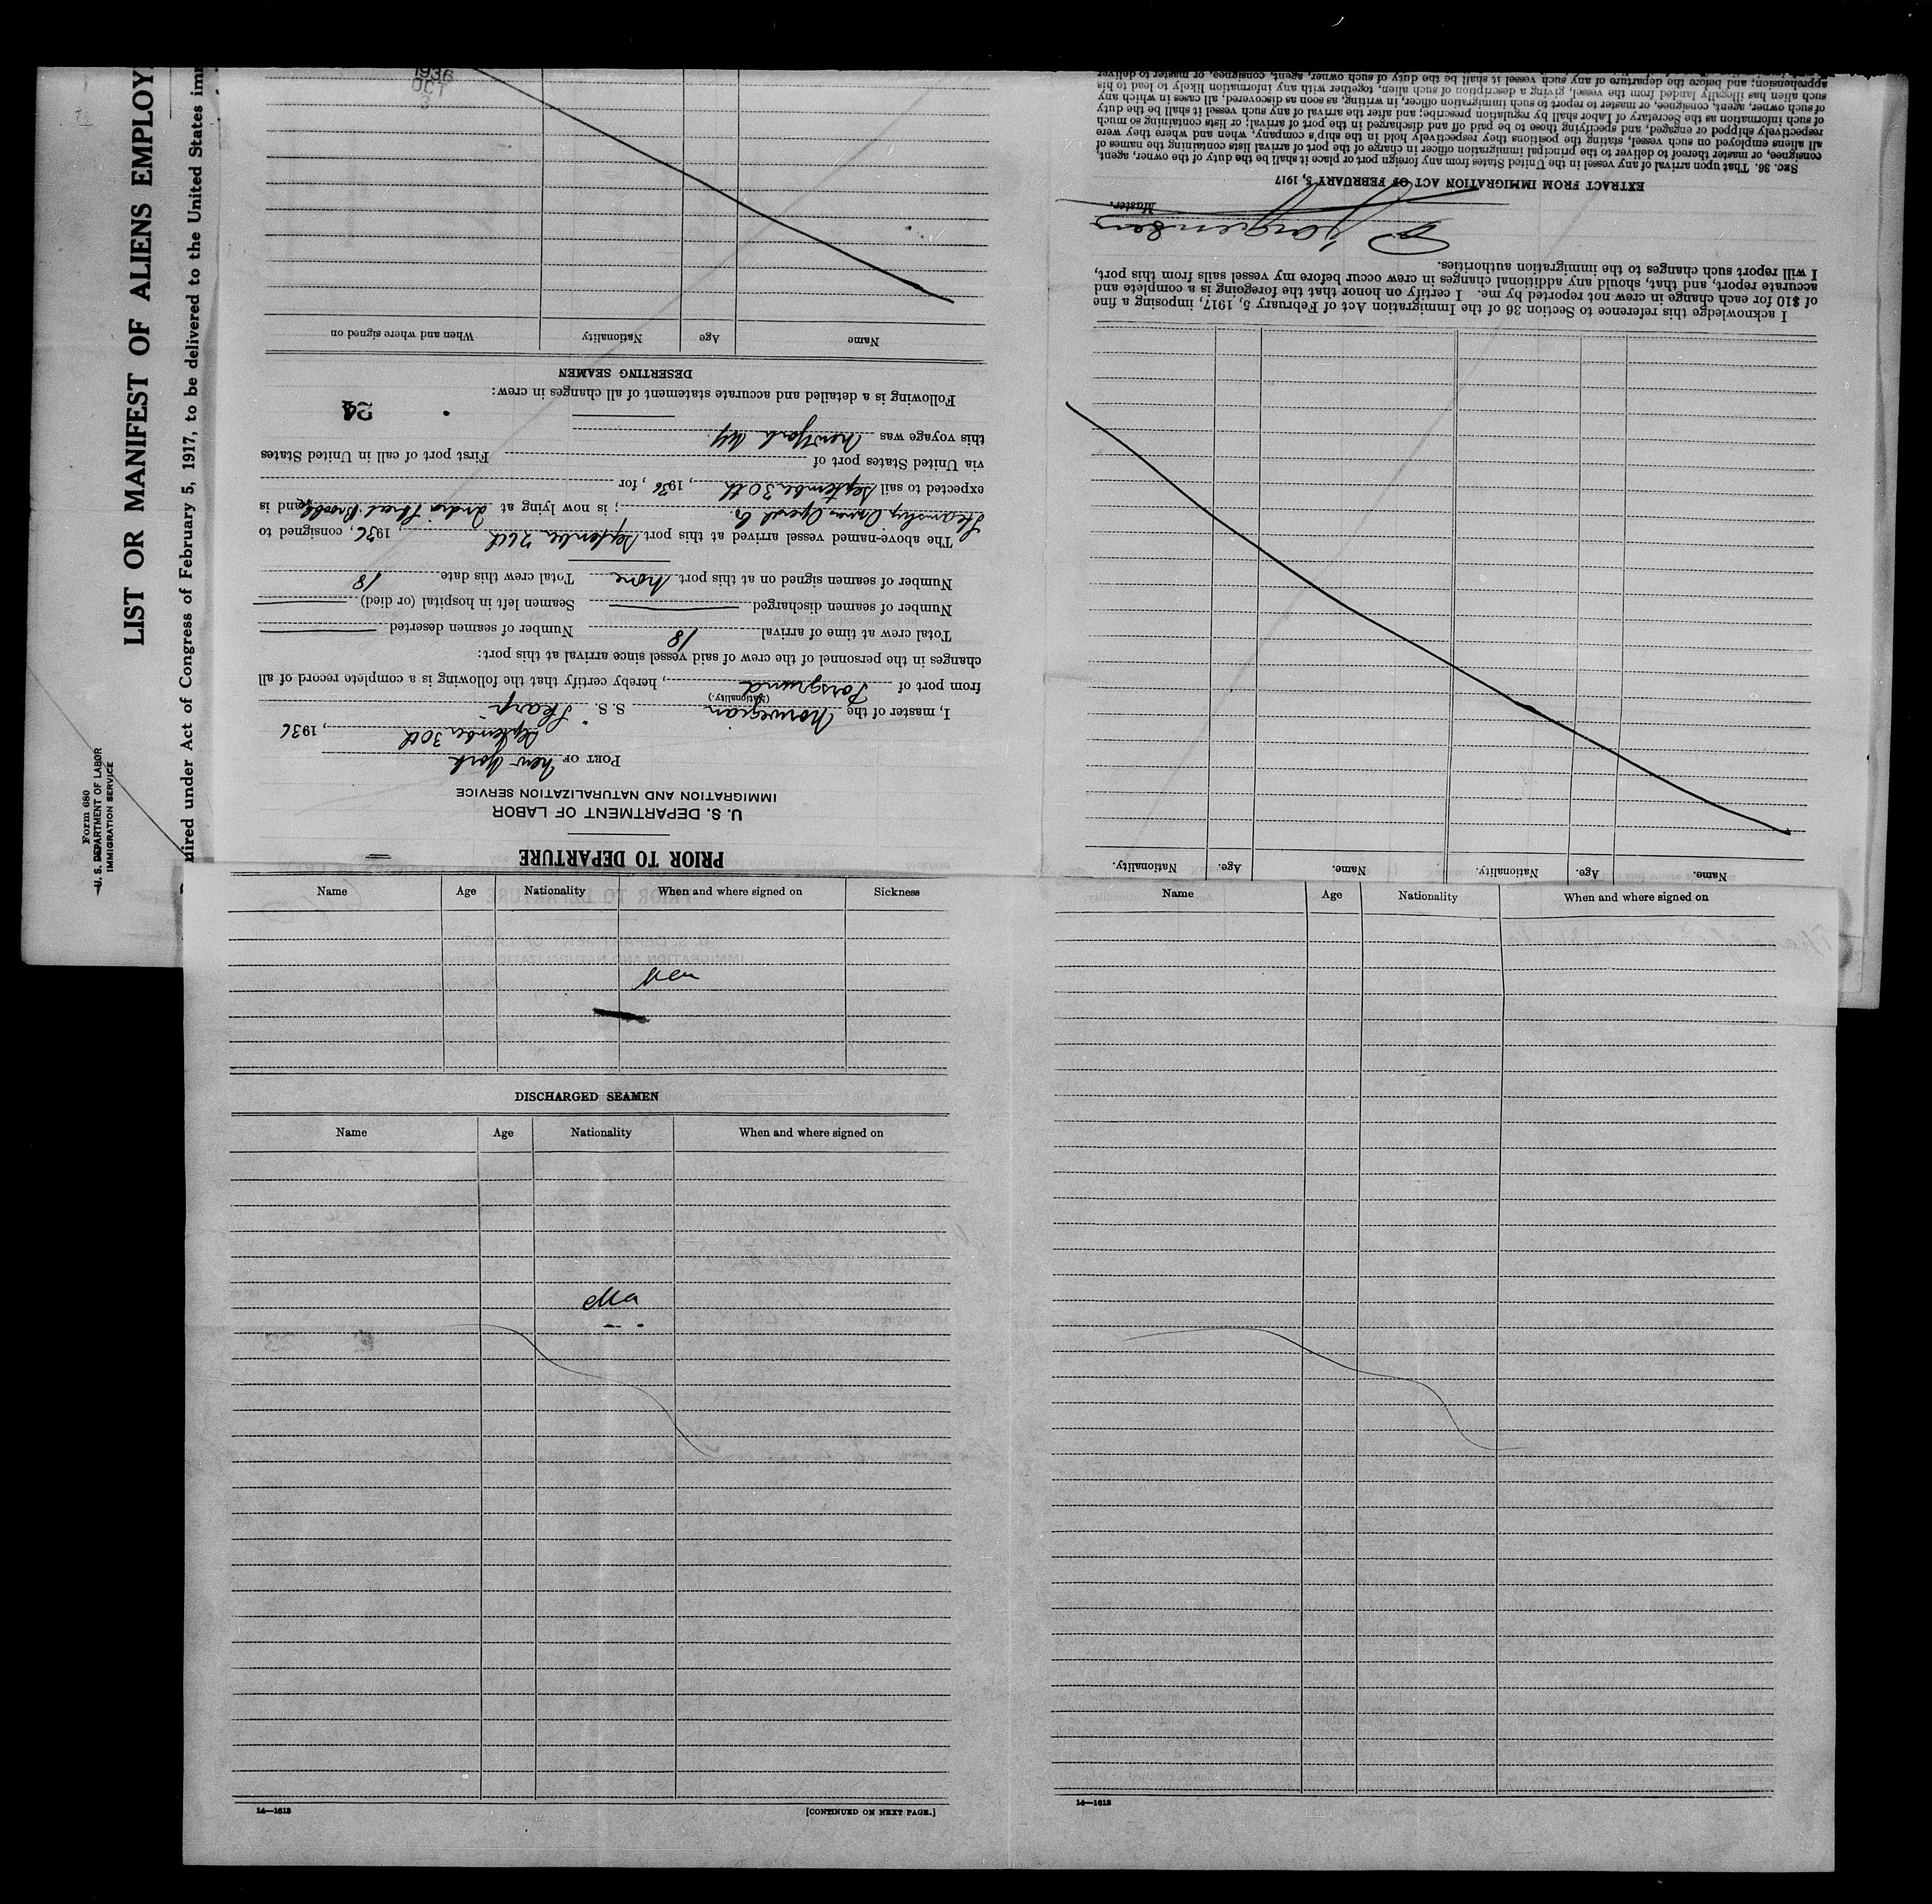 Form 680
U. S. DEPARTMENT OF LABOR
IMMIGRATION SERVICE
LIST OR MANIFEST OF ALIENS EMPLOY
uired under Act of Congress of February 5, 1917, to be delivered to the United States imm
PRIOR TO DEPARTURE
U. S. DEPARTMENT OF LABOR
IMMIGRATION AND NATURALIZATION SERVICE
PORT OF New York
September 30th, 1936
I, master of the Norwegian S. S. Skarp
(Nationality.)
from port of Porsgrund, hereby certify that the following is a complete record of all
changes in the personnel of the crew of said vessel since arrival at this port:
Total crew at time of arrival 18 Number of seamen deserted
Number of seamen discharged Seamen left in hospital (or died)
Number of seamen signed on at this port None Total crew this date 18
The above-named vessel arrived at this port September 26th, 1936, consigned to
; is now lying at and is
expected to sail September 30th, 1936, for
via United States port of First port of call in United States
this voyage was New York NY.
Following is a detailed and accurate statement of all changes in crew:
24
DESERTING SEAMEN
Name Age Nationality When and where signed on
OCT
1936
Name. Age. Nationality. Name. Age. Nationality.
I acknowledge this reference to Section 36 of the Immigration Act of February 5, 1917, imposing a fine
of $10 for each change in crew not reported by me. I certify on honor that the foregoing is a complete and
accurate report, and that, should any additional changes in crew occur before my vessel sails from this port,
I will report such changes to the immigration authorities.
Jörgensen
Master.
EXTRACT FROM IMMIGRATION ACT OF FEBRUARY 5, 1917
SEC. 36. That upon arrival of any vessel in the United States from any foreign port or place it shall be the duty of the owner, agent,
consignee, or master thereof to deliver to the principal immigration officer in charge of the port of arrival lists containing the names of
all aliens employed on such vessel, stating the positions they respectively hold in the ship's company, when and where they were
respectively shipped or engaged, and specifying those to be paid off and discharged in the port of arrival; or lists containing so much
of such information as the Secretary of Labor shall by regulation prescribe; and after the arrival of any such vessel it shall be the duty
of such owner, agent, consignee, or master to report to such immigration officer, in writing, as soon as discovered, all cases in which any
such alien has illegally landed from the vessel, giving a description of such alien, together with any information likely to lead to his
apprehension; and before the departure of any such vessel it shall be the duty of such owner, agent, consignee, or master to deliver
Name Age Nationality When and where signed on Sickness
DISCHARGED SEAMEN
Name Age Nationality When and where signed on
14—1613
[CONTINUED ON NEXT PAGE.]
Name Age Nationality When and where signed on
14—1613